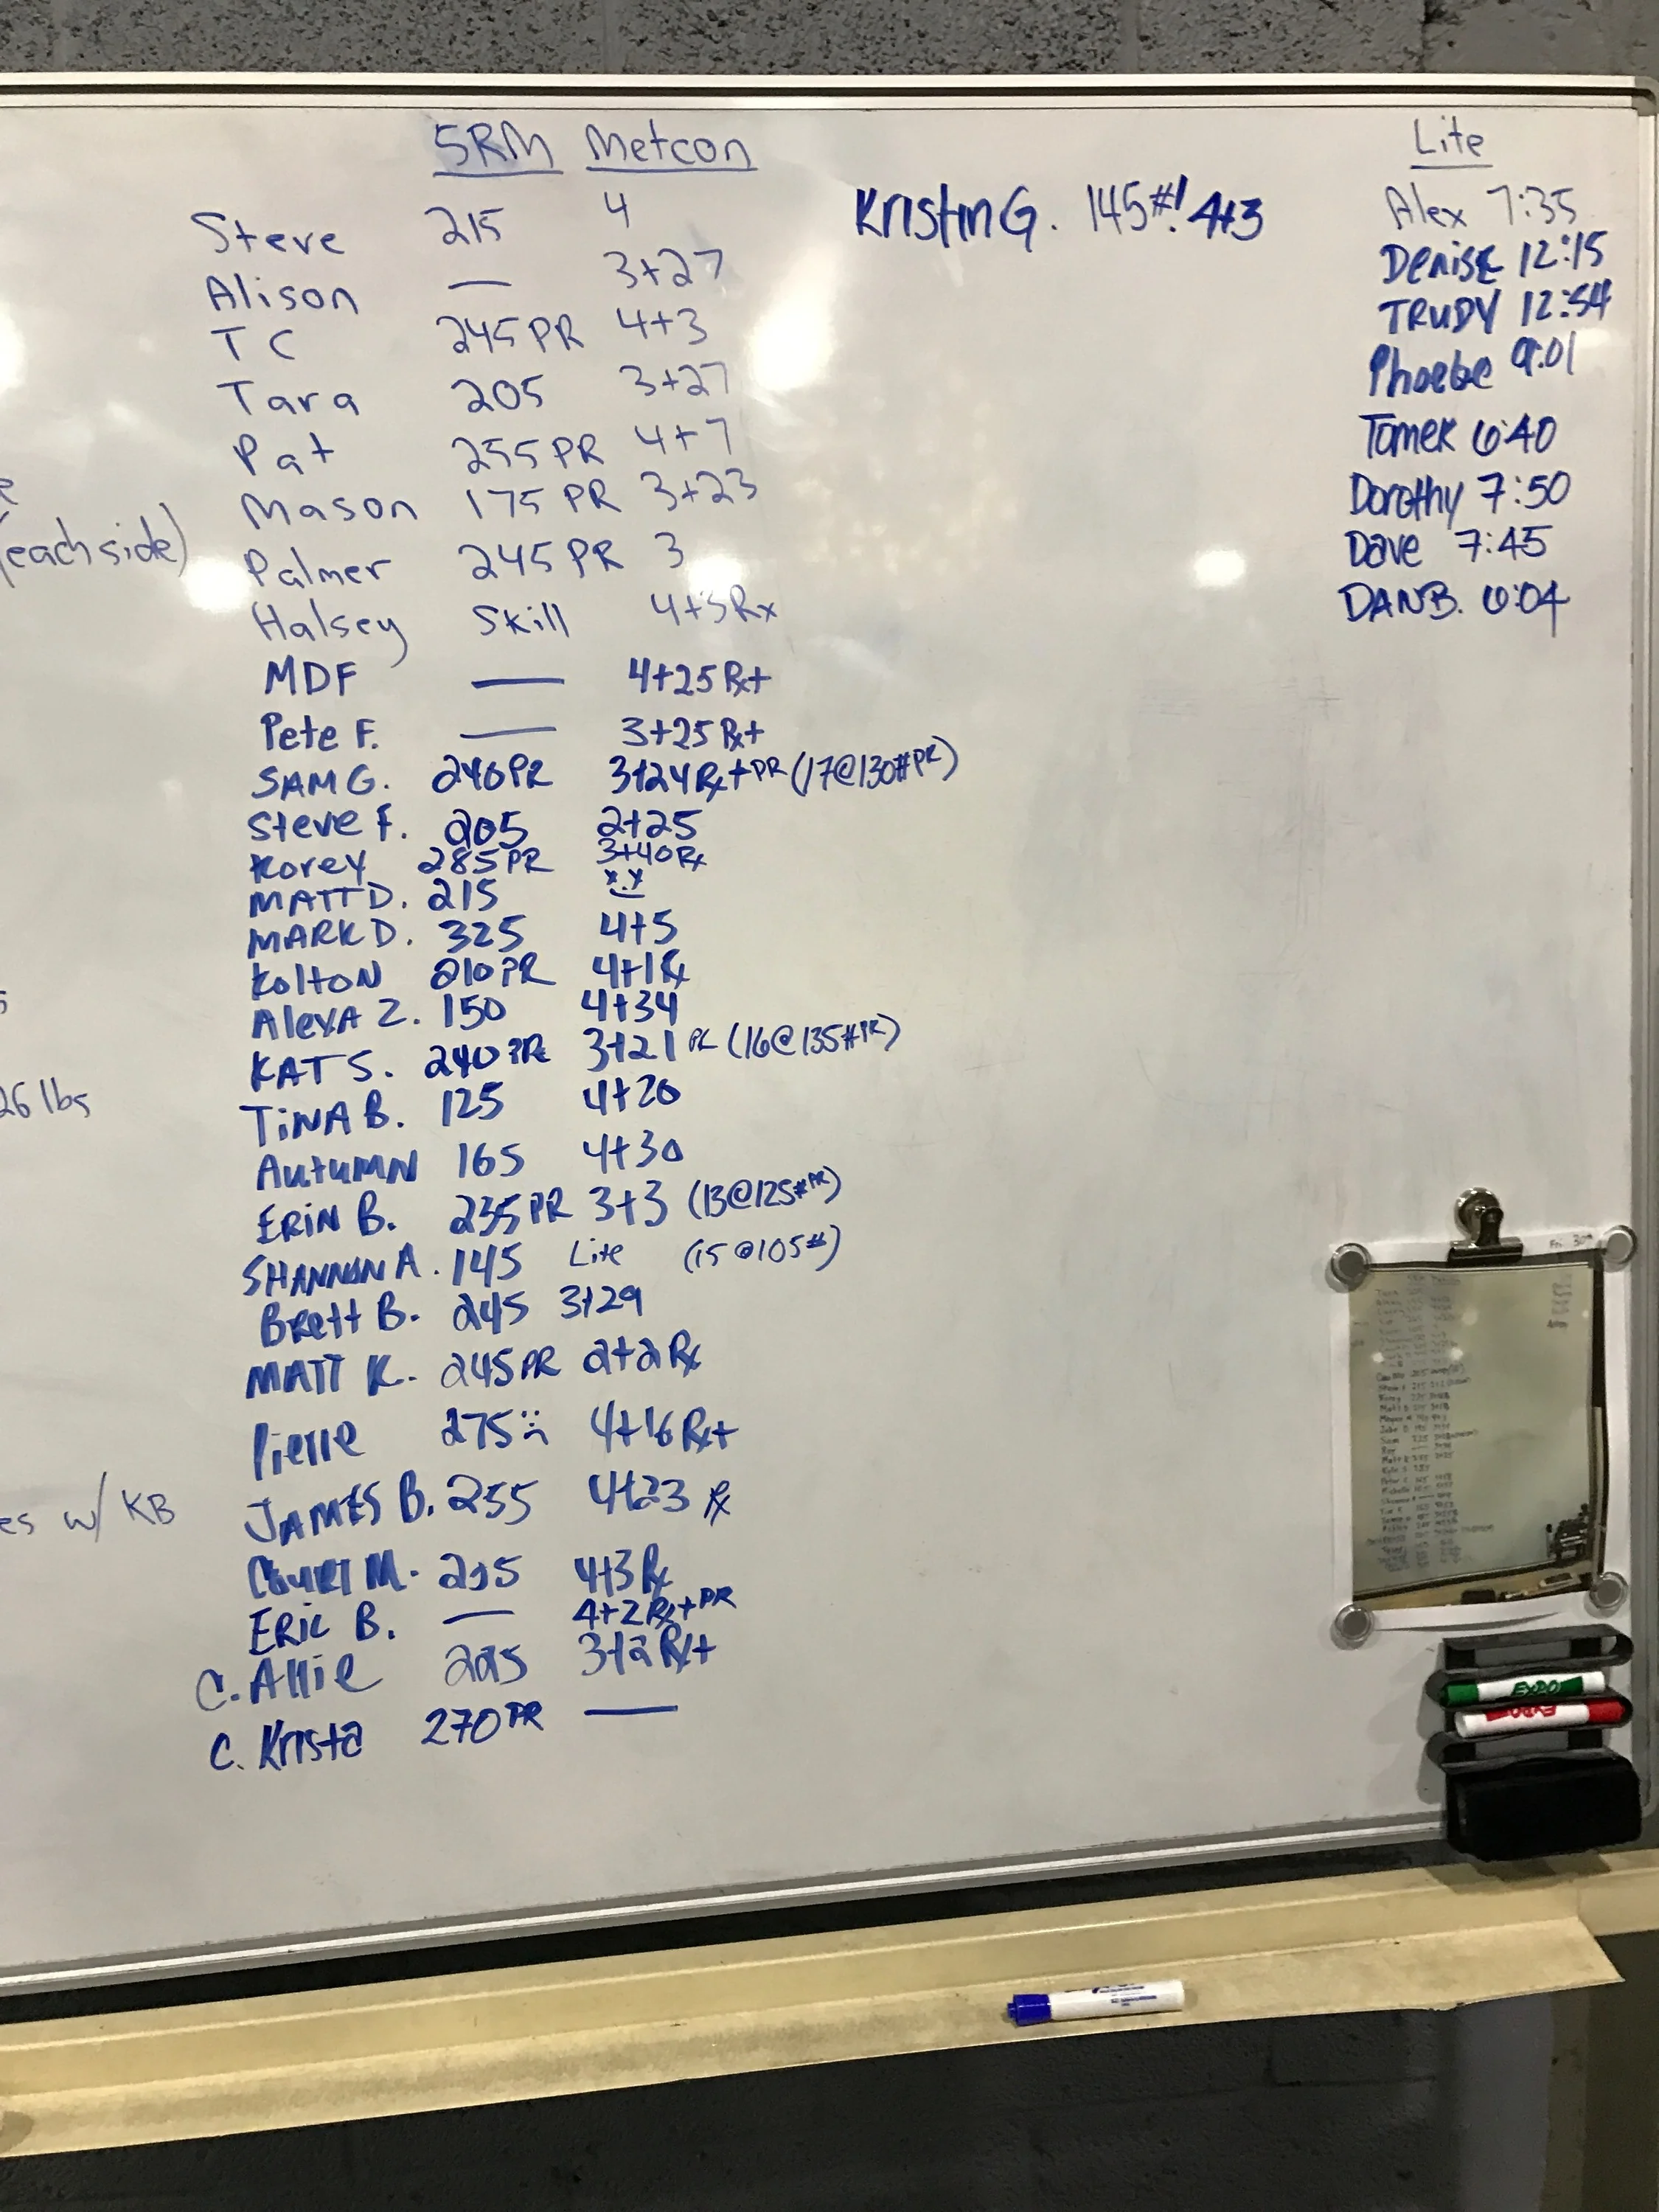 5RM Metcon
Steve 215 4
Alison — 3+27
TC 245 PR 4+3
Tara 205 3+27
Pat 255 PR 4+7
Mason 175 PR 3+23
Palmer 245 PR 3
Halsey Skill 4+3Rx
MDF — 4+25 Rx+
Pete F. — 3+25 Rx+
SAM G. 240PR 3+24 Rx+ PR (17@130# PR)
Steve F. 205 2+25
Korey 285PR 3+40 Rx
MATT D. 215 x.x
MARK D. 325 4+5
Kolton 210 PR 4+1 Rx
AlexA Z. 150 4+34
KAT S. 240 PR 3+21 PR (16@135# PR)
TiNA B. 125 4+20
AutuMN 165 4+30
ERiN B. 235 PR 3+3 (13@125# PR)
SHANNON A. 145 Lite (15@105#)
BRett B. 245 3+29
MATT K. 245 PR 2+2 Rx
Pierre 275 4+16 Rx+
JAMES B. 255 4+23 Rx
COURT M. 4+3 Rx
ERIC B. — 4+2 Rx+ PR
C. Allie 225 3+2 Rx+
C. Krista 270 PR —
Kristin G. 145#! 4+3
Lite
Alex 7:35
Denise 12:15
TRUDY 12:54
Phoebe 9:01
Tomek 6:40
Dorothy 7:50
Dave 7:45
DAN B. 6:04
(each side)
26 lbs
es w/ KB
Fri
EXPO
EXPO